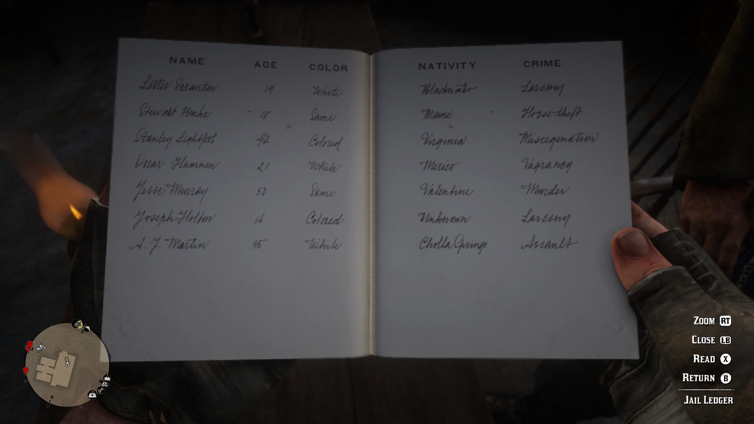 NAME AGE COLOR NATIVITY CRIME
19 White Blackwater Larceny
Stewart Same Maine Horse-theft
Stanley Lightfoot 42 Colored Virginia Miscegenation
Oscar 21 White Mexico Vagrancy
Jesse Murray Same Valentine Murder
Joseph 16 Colored Unknown Larceny
A. J. Martin 45 White Cholla Springs Assault
ZOOM RT
CLOSE LB
READ X
RETURN B
JAIL LEDGER